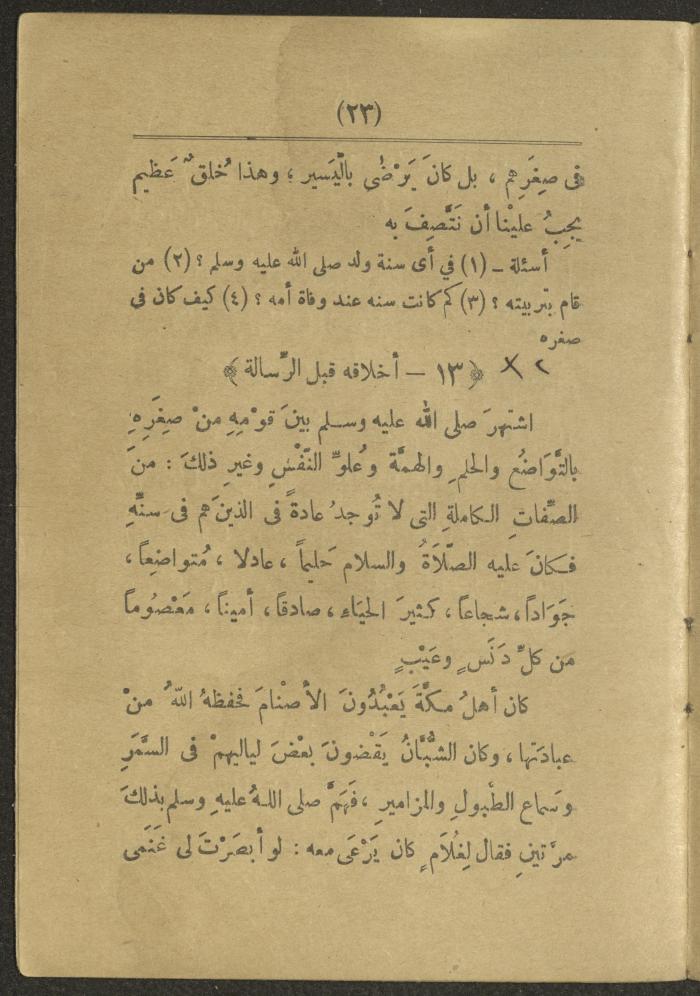 (٢٣)
فى صِغَرِهم ، بل كانَ يَرْضَى بالْيَسير ؛ وهذا خُلقٌ عَظيم
يجِبُ علينْا أن نَتَّصِفَ به
أسئلة – (١) في أى سنة ولد صلى الله عليه وسلم ؟ (٢) من
قام بتربيته ؟ (٣) كم كانت سنه عند وفاة أمه ؟ (٤) كيف كان فى
صغره
﴿ ١٣ – أخلاقه قبل الرِّسالة ﴾
اشتهرَ صلى الله عليه وسلم بينَ قوْمِهِ منْ صِغَرِهِ
بالتَّوَاضُع والحلمِ والهمَّة وعُلوِّ النَّفْسِ وغيرِ ذلكَ : منَ
الصِّفاتِ الكاملةِ التى لا تُوجدُ عادةً فى الذينَ هم فى سنِّهِ
فكانَ عليه الصَّلاَةُ والسلام حَليماً ، عادلا ، مُتواضِعاً ،
جَوَاداً ، شجاعاً ، كثيرَ الحيَاءِ ، صادقاً ، أميناً ، مَعْصُوماً
من كلِّ دَنَسٍ وعَيْبٍ
كان أهلُ مكَّةَ يَعْبُدُونَ الأصْنامَ فحفظهُ اللهُ منْ
عبادَتها ، وكان الشُّبَّانُ يَقْضونَ بعْضَ لياليهمْ فى السَّمَرِ
وسَماع الطبولِ والمزاميرِ ، فَهَمَّ صلى اللهُ عليهِ وسلم بذلكَ
مرَّتينِ فقال لِغُلاَمٍ كان يَرْعَى معه : لو أبصَرْتَ لى غَنَمى